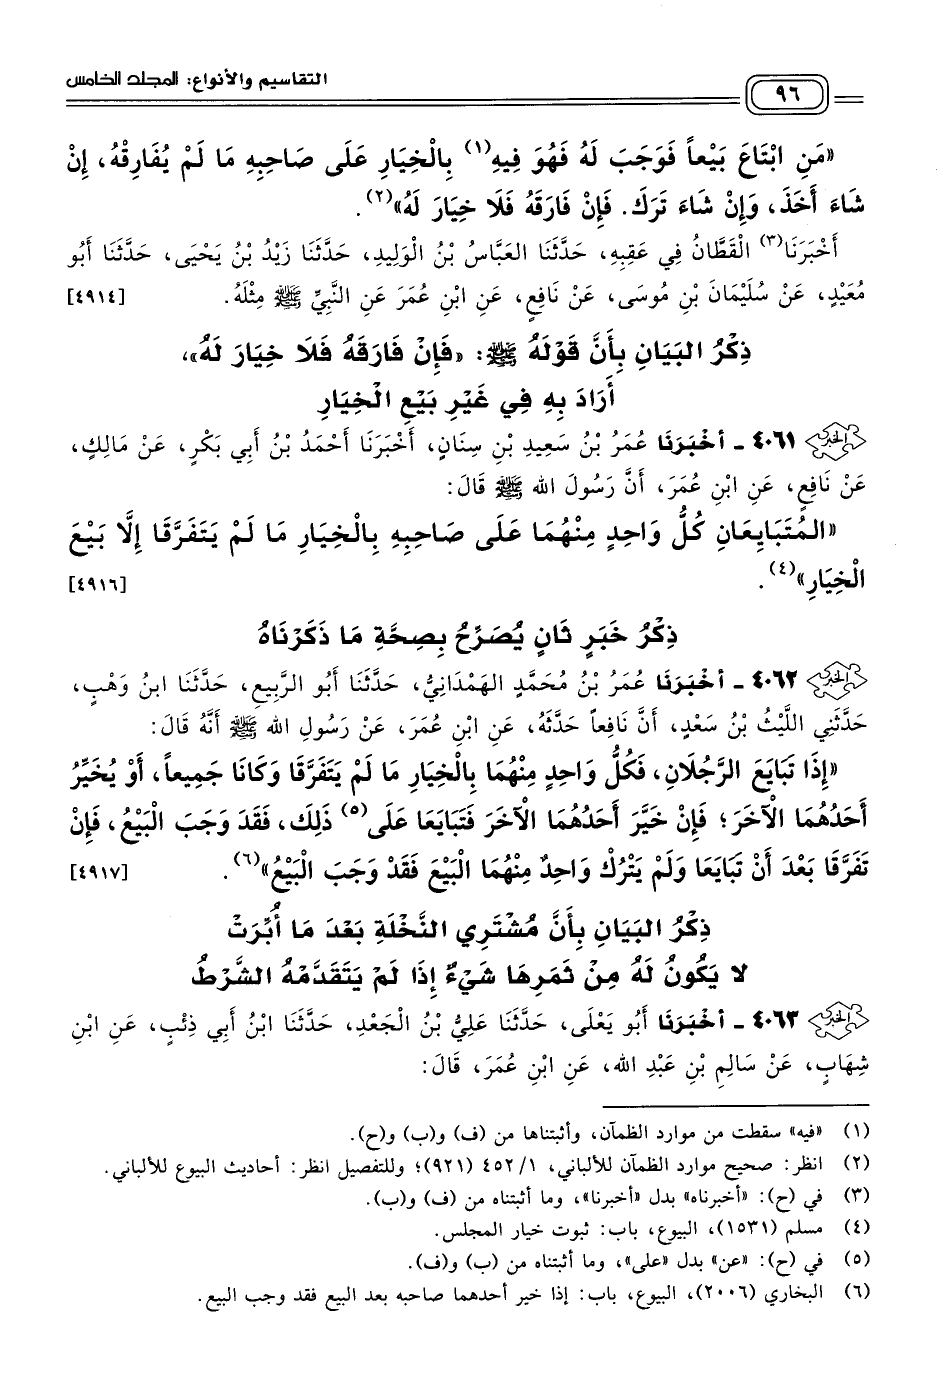 ٩٦
التقاسيم والأنواع: المجلد الخامس
«مَنِ ابْتَاعَ بَيْعاً فَوَجَبَ لَهُ فَهُوَ فِيهِ(١) بِالْخِيَارِ عَلَى صَاحِبِهِ مَا لَمْ يُفَارِقْهُ، إِنْ
شَاءَ أَخَذَ، وَإِنْ شَاءَ تَرَكَ. فَإِنْ فَارَقَهُ فَلَا خِيَارَ لَهُ»(٢).
أَخْبَرَنَا(٣) الْقَطَّانُ فِي عَقِبِهِ، حَدَّثَنَا العَبَّاسُ بْنُ الْوَلِيدِ، حَدَّثَنَا زَيْدُ بْنُ يَحْيَى، حَدَّثَنَا أَبُو
مُعَيْدٍ، عَنْ سُلَيْمَانَ بْنِ مُوسَى، عَنْ نَافِعٍ، عَنِ ابْنِ عُمَرَ عَنِ النَّبِيِّ ﷺ مِثْلَهُ. [٤٩١٤]
ذِكْرُ البَيَانِ بِأَنَّ قَوْلَهُ ﷺ: «فَإِنْ فَارَقَهُ فَلَا خِيَارَ لَهُ»،
أَرَادَ بِهِ فِي غَيْرِ بَيْعِ الْخِيَارِ
٤٠٦١ - أَخْبَرَنَا عُمَرُ بْنُ سَعِيدِ بْنِ سِنَانٍ، أَخْبَرَنَا أَحْمَدُ بْنُ أَبِي بَكْرٍ، عَنْ مَالِكٍ،
عَنْ نَافِعٍ، عَنِ ابْنِ عُمَرَ، أَنَّ رَسُولَ الله ﷺ قَالَ:
«المُتَبَايِعَانِ كُلُّ وَاحِدٍ مِنْهُمَا عَلَى صَاحِبِهِ بِالْخِيَارِ مَا لَمْ يَتَفَرَّقَا إِلَّا بَيْعَ
الْخِيَارِ»(٤). [٤٩١٦]
ذِكْرُ خَبَرٍ ثَانٍ يُصَرِّحُ بِصِحَّةِ مَا ذَكَرْنَاهُ
٤٠٦٢ - أَخْبَرَنَا عُمَرُ بْنُ مُحَمَّدٍ الهَمْدَانِيُّ، حَدَّثَنَا أَبُو الرَّبِيعِ، حَدَّثَنَا ابنُ وَهْبٍ،
حَدَّثَنِي اللَّيْثُ بْنُ سَعْدٍ، أَنَّ نَافِعاً حَدَّثَهُ، عَنِ ابْنِ عُمَرَ، عَنْ رَسُولِ الله ﷺ أَنَّهُ قَالَ:
«إِذَا تَبَايَعَ الرَّجُلَانِ، فَكُلُّ وَاحِدٍ مِنْهُمَا بِالْخِيَارِ مَا لَمْ يَتَفَرَّقَا وَكَانَا جَمِيعاً، أَوْ يُخَيِّرُ
أَحَدُهُمَا الْآخَرَ؛ فَإِنْ خَيَّرَ أَحَدُهُمَا الْآخَرَ فَتَبَايَعَا عَلَى(٥) ذَلِكَ، فَقَدْ وَجَبَ الْبَيْعُ، فَإِنْ
تَفَرَّقَا بَعْدَ أَنْ تَبَايَعَا وَلَمْ يَتْرُكْ وَاحِدٌ مِنْهُمَا الْبَيْعَ فَقَدْ وَجَبَ الْبَيْعُ»(٦). [٤٩١٧]
ذِكْرُ البَيَانِ بِأَنَّ مُشْتَرِي النَّخْلَةِ بَعْدَ مَا أُبِّرَتْ
لا يَكُونُ لَهُ مِنْ ثَمَرِهَا شَيْءٌ إِذَا لَمْ يَتَقَدَّمْهُ الشَّرْطُ
٤٠٦٣ - أَخْبَرَنَا أَبُو يَعْلَى، حَدَّثَنَا عَلِيُّ بْنُ الْجَعْدِ، حَدَّثَنَا ابْنُ أَبِي ذِئْبٍ، عَنِ ابْنِ
شِهَابٍ، عَنْ سَالِمِ بْنِ عَبْدِ الله، عَنِ ابْنِ عُمَرَ، قَالَ:
(١) «فيه» سقطت من موارد الظمآن، وأثبتناها من (ف) و(ب) و(ح).
(٢) انظر: صحيح موارد الظمآن للألباني، ١/ ٤٥٢ (٩٢١)؛ وللتفصيل انظر: أحاديث البيوع للألباني.
(٣) في (ح): «أخبرناه» بدل «أخبرنا»، وما أثبتناه من (ف) و(ب).
(٤) مسلم (١٥٣١)، البيوع، باب: ثبوت خيار المجلس.
(٥) في (ح): «عن» بدل «على»، وما أثبتناه من (ب) و(ف).
(٦) البخاري (٢٠٠٦)، البيوع، باب: إذا خير أحدهما صاحبه بعد البيع فقد وجب البيع.